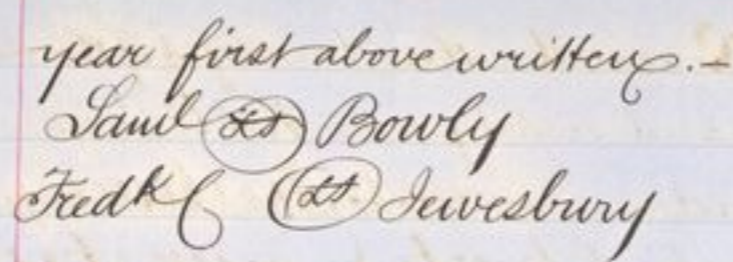 year first above written. –
Saml LS Bowly
Fredk C LS Jewesbury